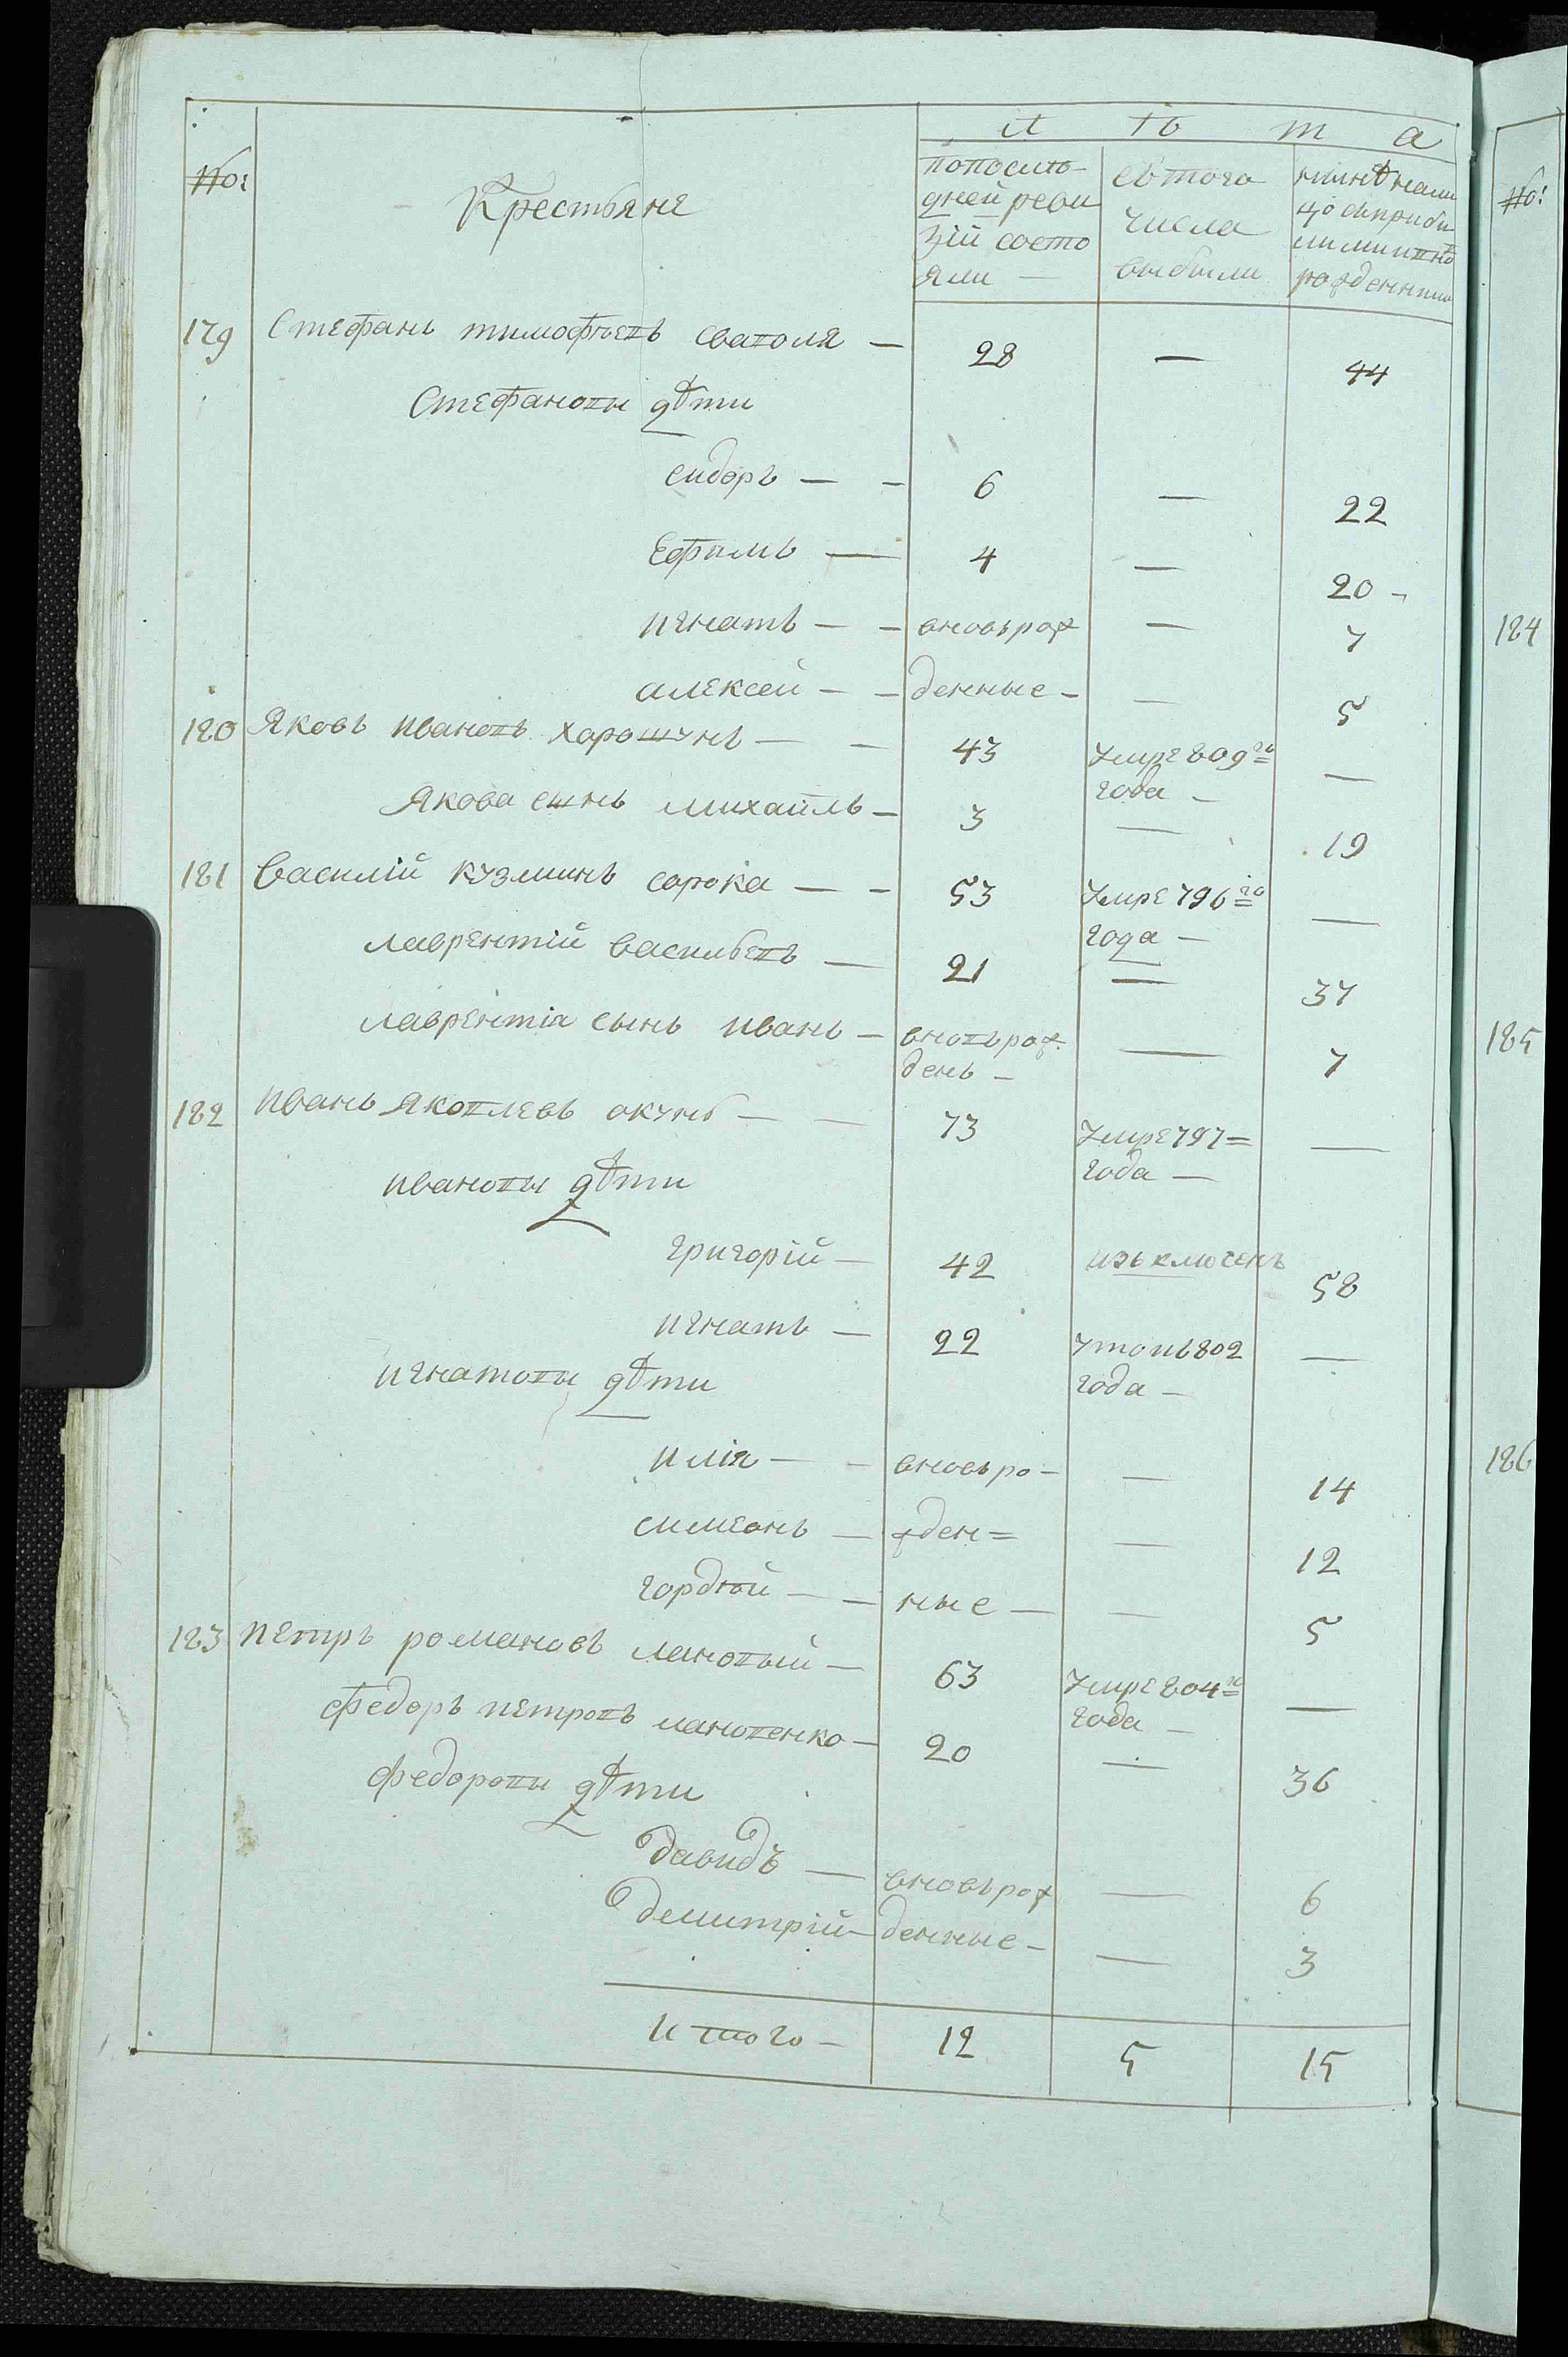 №:
Крестьяне
л ѣ т а
попослѣ-
дней реви
зіи состо
яли —
съ того
числа
выбыли
нынѣ нали
цо сприбы
лыми и вно
рожденным
179 Стефанъ тимофѣевъ сваволя — 28 — 44
Стефановы дѣти
сидоръ — — 6 — 22
Ефимъ — 4 — 20 -
игнатъ — — вновь рож — 7
алексей — — денные — — 5
180 Яковъ ивановъ хорошунъ — — 43 умре 809го —
года —
Якова сынъ михайлъ — 3 — 19
181 Василій кузминъ сорока — — 53 умре 796го —
года —
лаврентій васильевъ — 21 — 37
лаврентія сынъ иванъ — вновь рож. — 7
денъ —
182 иванъ яковлевъ окунь — — 73 умре 797 = —
года —
ивановы дѣти
григорій — 42 изъключенъ 58
игнатъ — 22 утопъ 802 —
года —
игнатовы дѣти
илія — — вновь ро — — 14
симеонъ — жден = — 12
гордѣй — — ные — — 5
183 петръ романовъ лановый — 63 умре 804го —
года —
федоръ петровъ лановенко — 20 — 36
федоровы дѣти
давидъ — вновь рож — 6
демитрій — денные — — 3
итого — 12 5 15
№:
184
185
186